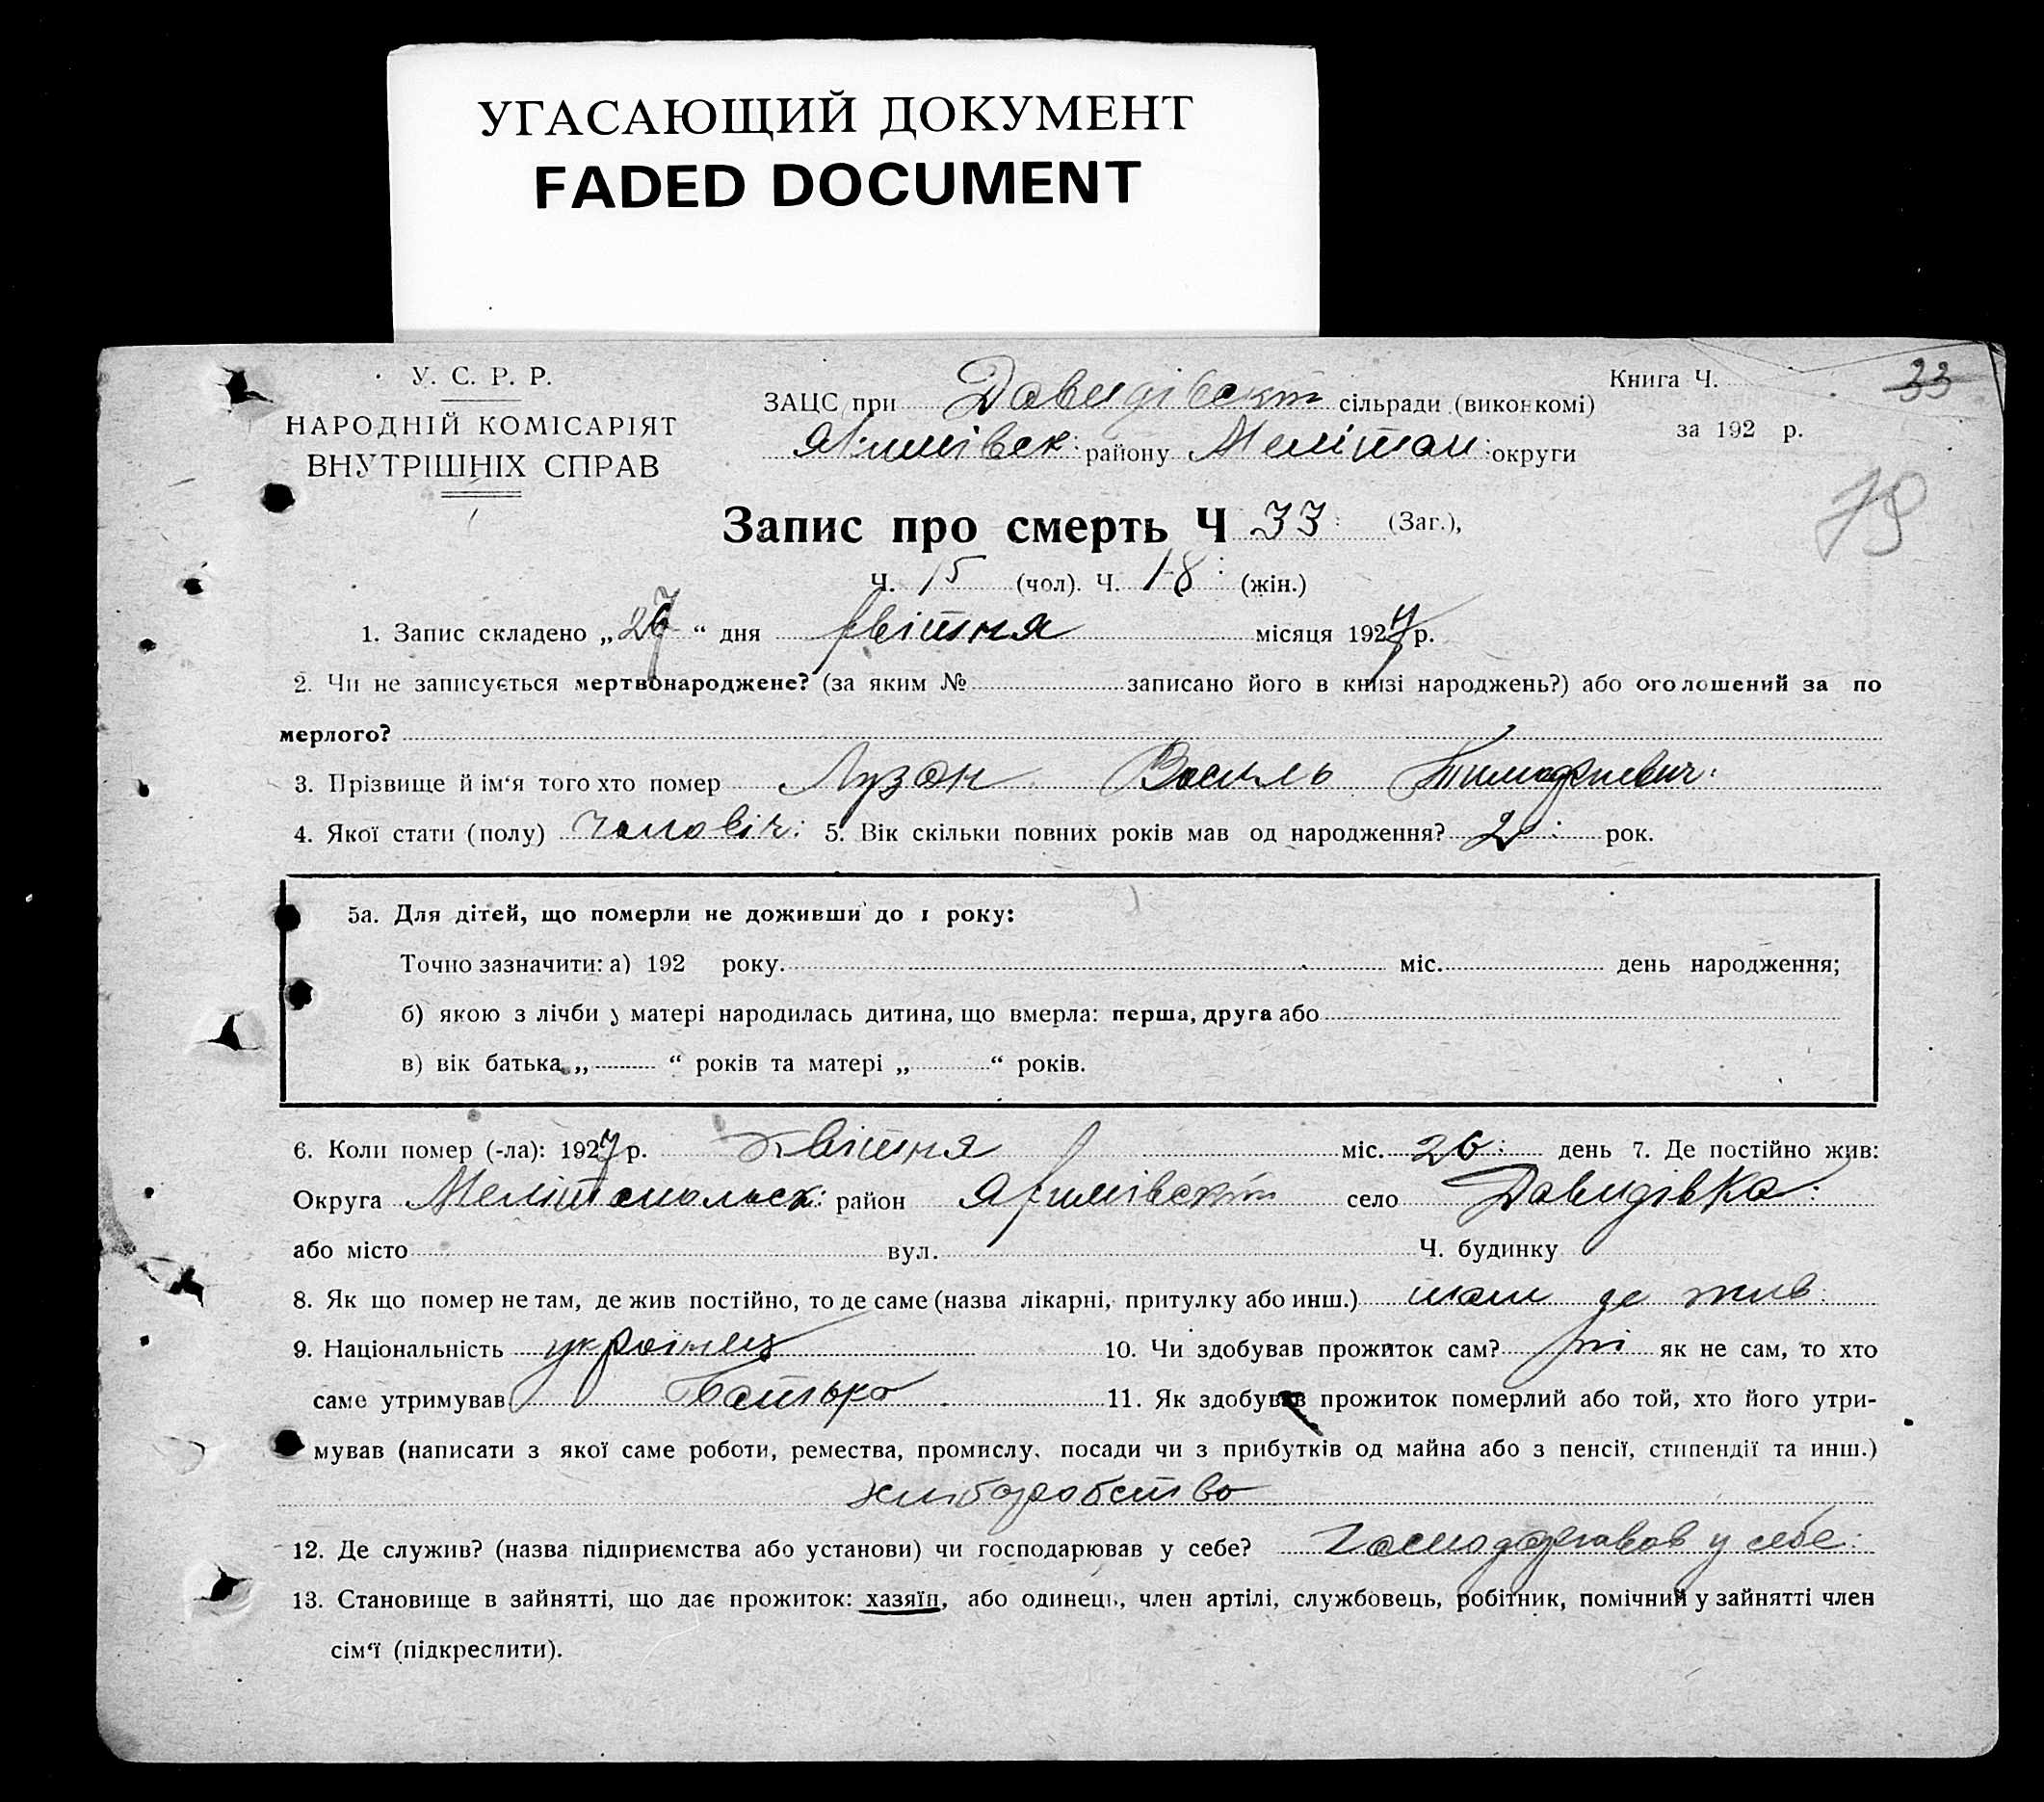 УГАСАЮЩИЙ ДОКУМЕНТ
FADED DOCUMENT
У. С. Р. Р.
НАРОДНІЙ КОМІСАРІЯТ
ВНУТРІШНІХ СПРАВ
Книга Ч. 33
за 192 р.
79
ЗАЦС при Давидівскій сільради (виконкомі)
Якимівськ: району Меліт округи
Запис про смерть Ч 33: (Заг.),
Ч. 15 (чол). Ч. 18: (жін.)
1. Запис складено „27“ дня квітня місяця 1927 р.
2. Чи не записується мертвонароджене? (за яким № записано його в книзі народжень?) або оголошений за по
мерлого?
3. Прізвище й ім‘я того хто помер Лузан Василь
4. Якої стати (полу) чоловіч: 5. Вік скільки повних років мав од народження? рок.
5а. Для дітей, що померли не доживши до 1 року:
Точно зазначити: а) 192 року. міс. день народження;
б) якою з лічби у матері народилась дитина, що вмерла: перша, друга або
в) вік батька „ “ років та матері „ “ років.
6. Коли помер (-ла): 1927 р. квітня міс. 26: день 7. Де постійно жив:
Округа Мелітопольск: район Якимівскій село Давидівка:
або місто вул. Ч. будинку
8. Як що помер не там, де жив постійно, то де саме (назва лікарні, притулку або инш.) там де жив.
9. Національність українец 10. Чи здобував прожиток сам? ні як не сам, то хто
саме утримував Батько 11. Як здобував прожиток померлий або той, хто його утри-
мував (написати з якої саме роботи, ремества, промислу, посади чи з прибутків од майна або з пенсії, стипендії та инш.)
хліборобство
12. Де служив? (назва підприємства або установи) чи господарював у себе? господарював у себе:
13. Становище в зайнятті, що дає прожиток: хазяїн, або одинець, член артілі, службовець, робітник, помічний у зайнятті член
сім‘ї (підкреслити).